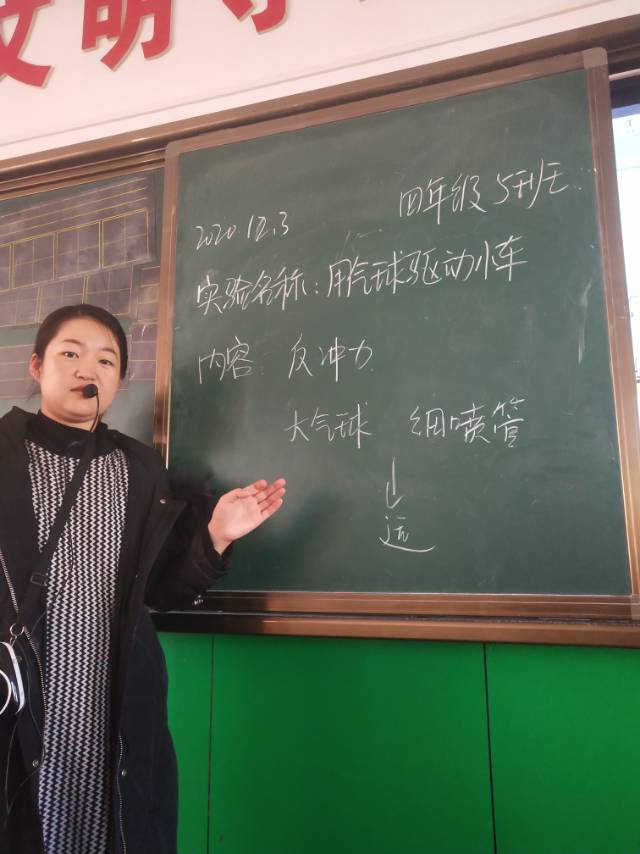 文明守
2020.12.3 四年级5班
实验名称：用气球驱动小车
内容：反冲力
大气球 细喷管
↓
远